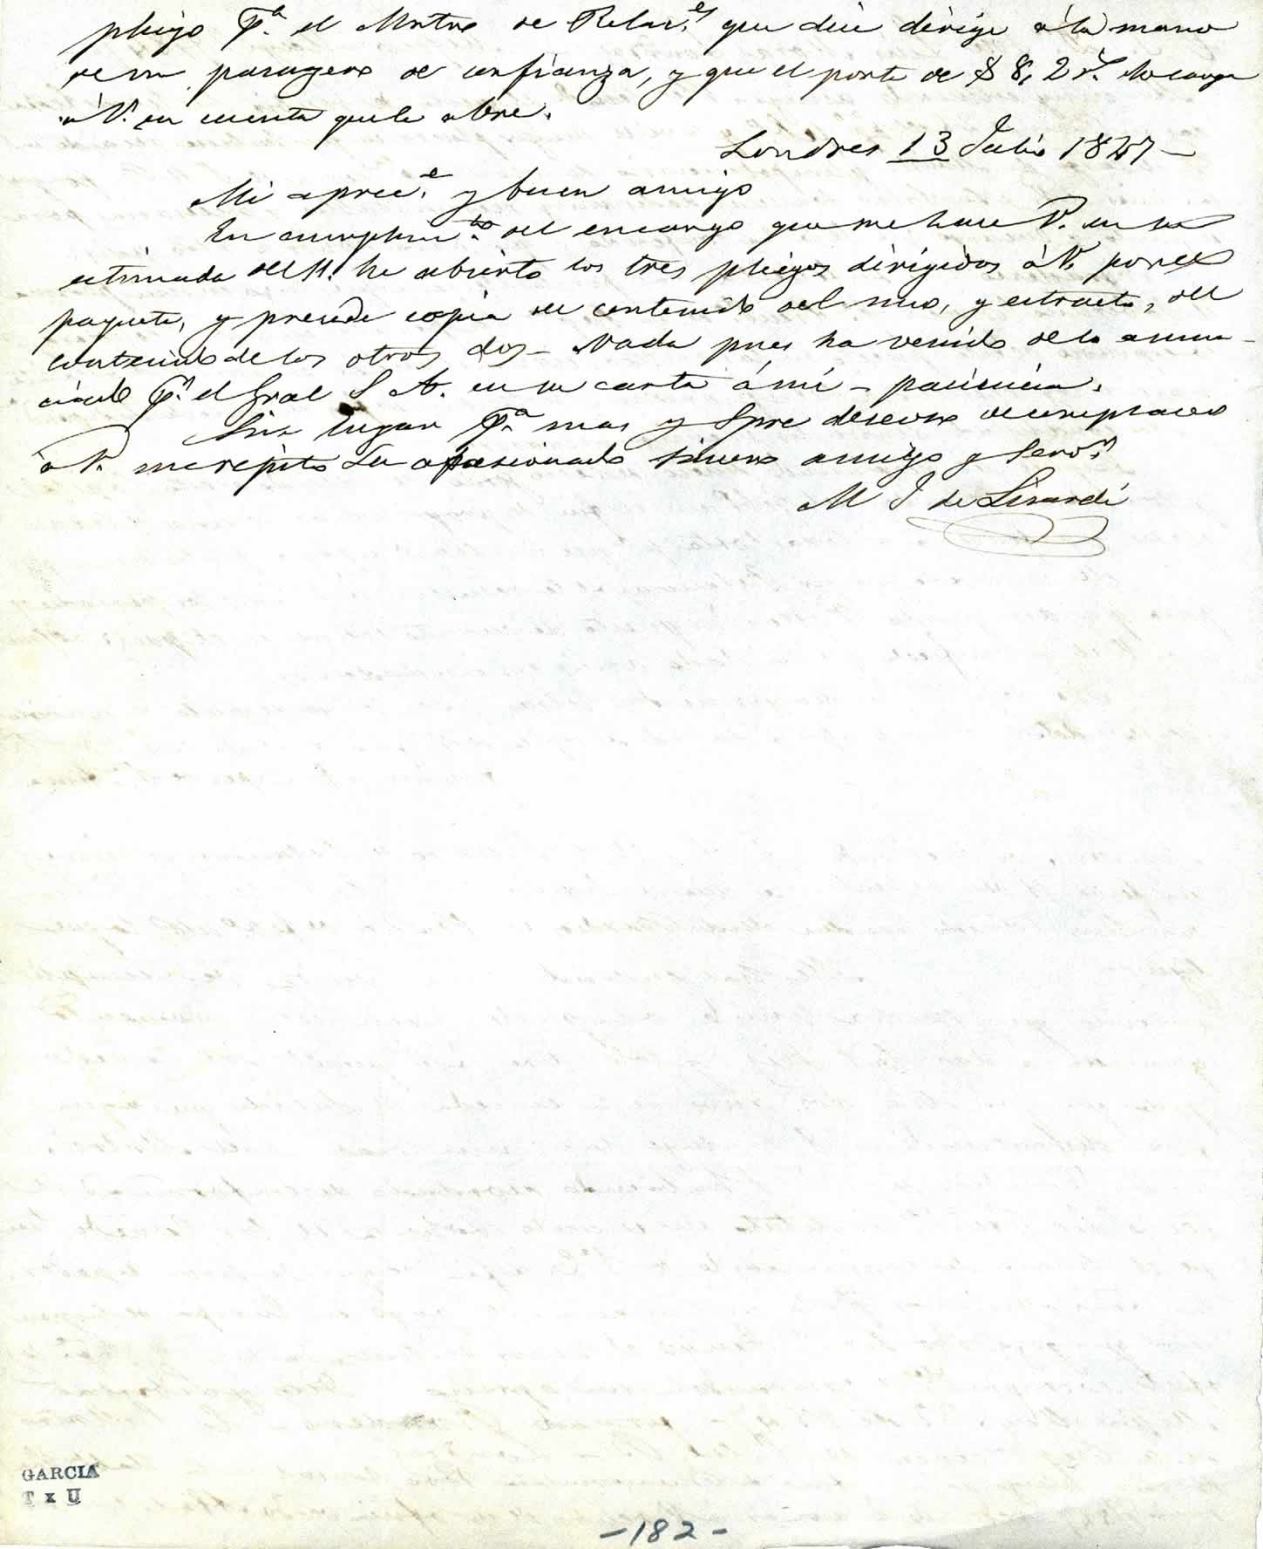 pliego Pª. el Mntro de Relac.ˢ que dice dirige á la mano
de un pasagero de confianza, y que el porte de $ 8, 2 rˢ. lo carga
á V. en cuenta que le abre.
Londres 13 Julio 1847 —
Mi aprec.ᵉ y buen amigo
En cumplim.ᵗᵒ del encargo que me hace V. en su
estimada del 11. he abierto los tres pliegos dirigidos á V. por el
paquete, y precede copia del contenido del mio, y extracto, del
contenido de los otros dos — Nada pues ha venido de lo anun-
ciado Pʳ. el Gral S A. en su carta á mi — paciencia.
Sin lugar Pª. mas y Spre deseoso de complacer
á V. me repito Su apasionado sincero amigo y Servᵒʳ
M J de Lizardi
GARCIA
T x U
-182-